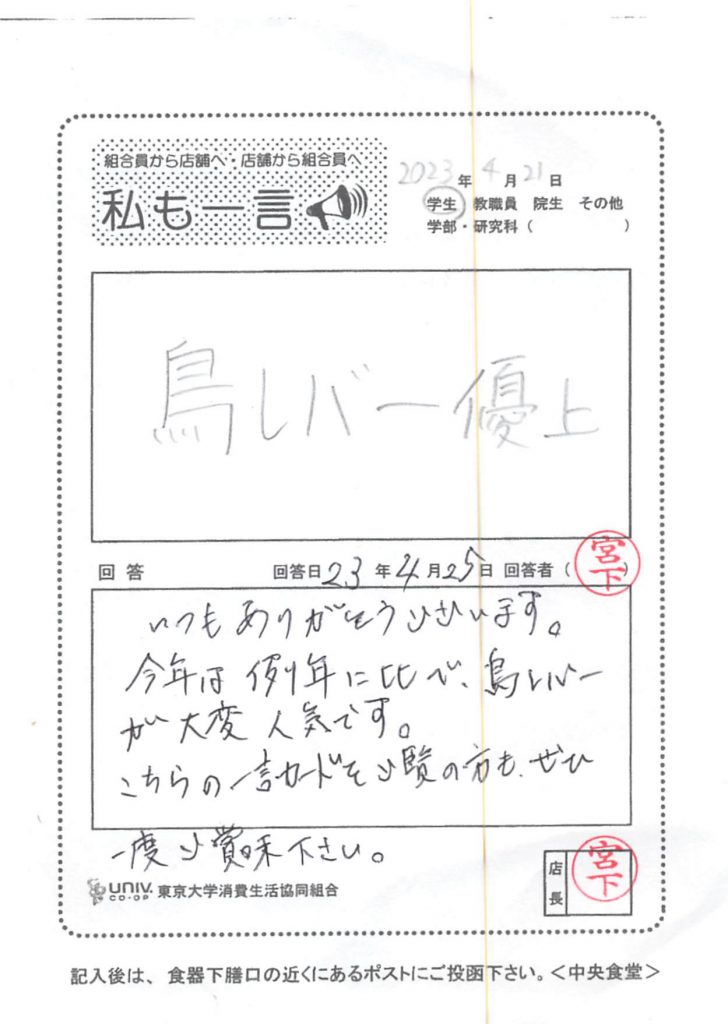 組合員から店舗へ・店舗から組合員へ
私も一言
2023年4月21日
学生 教職員 院生 その他
学部・研究科( )
鳥レバー優上
回答 回答日23年4月25日 回答者(宮下)
いつもありがとうございます。
今年は例年に比べ、鳥レバー
が大変人気です。
こちらの一言カードをご覧の方も、ぜひ
一度ご賞味下さい。
UNIV. CO-OP 東京大学消費生活協同組合
店長 宮下
記入後は、食器下膳口の近くにあるポストにご投函下さい。<中央食堂>